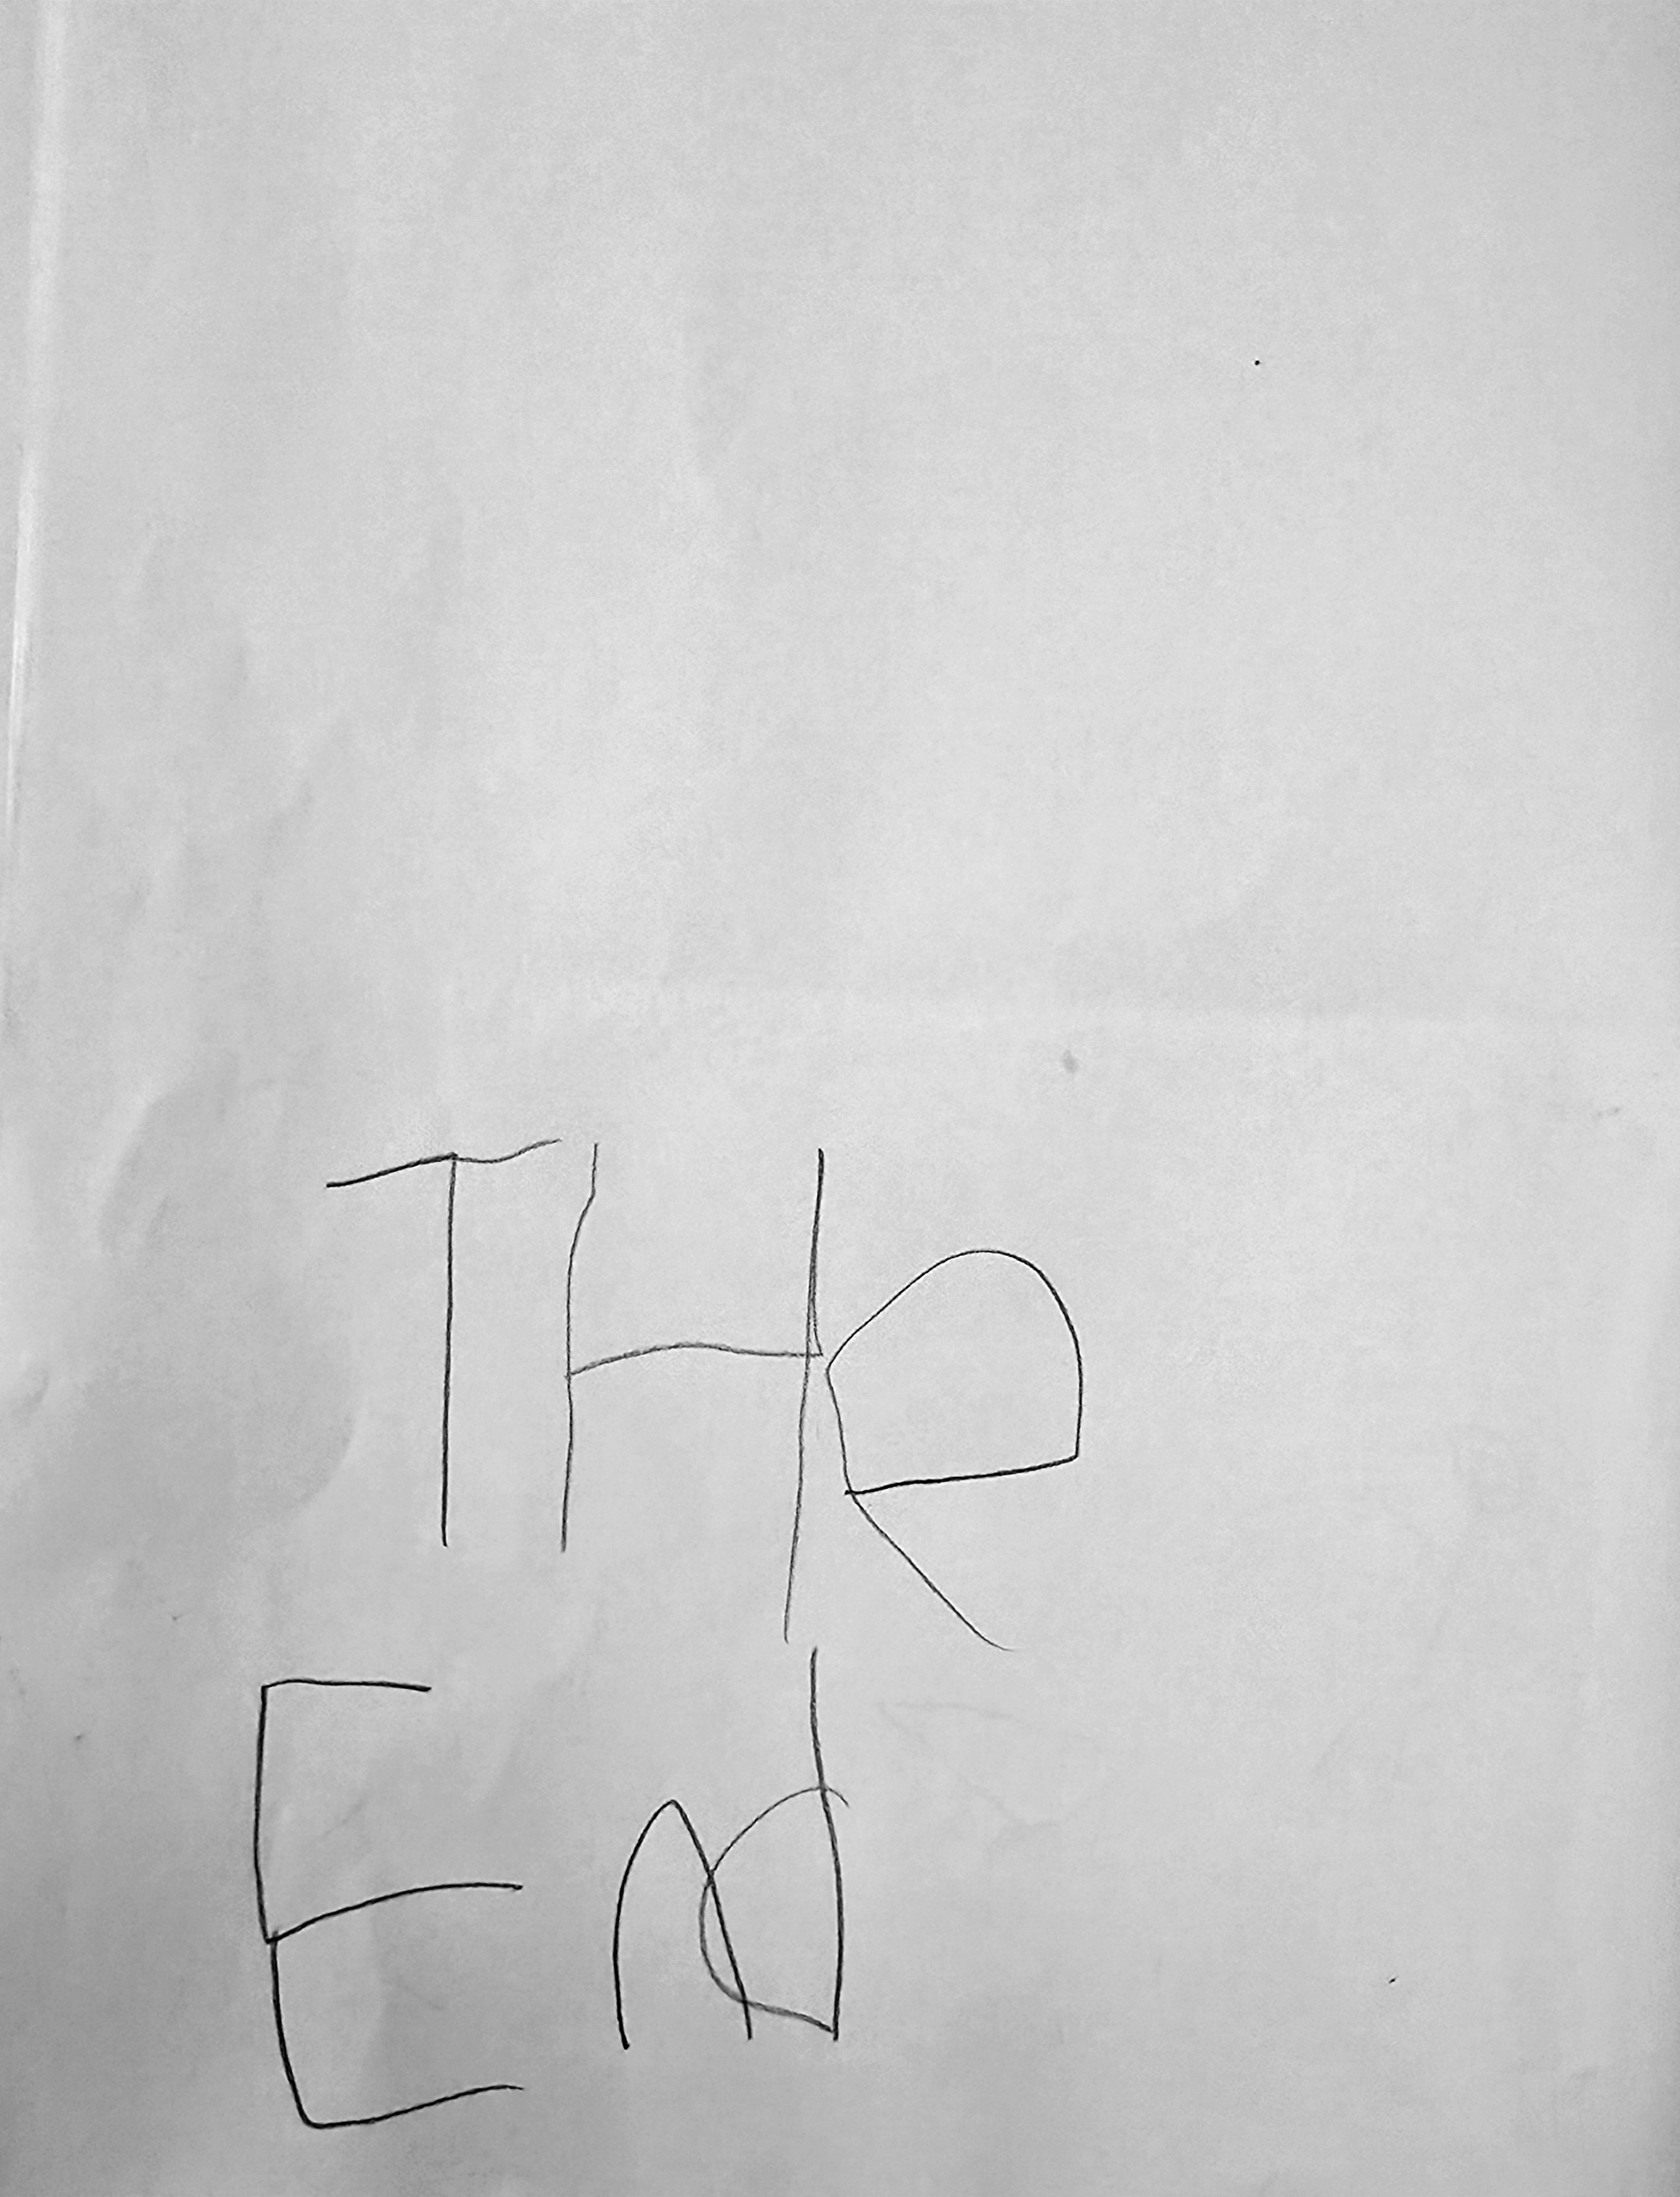 THe
End